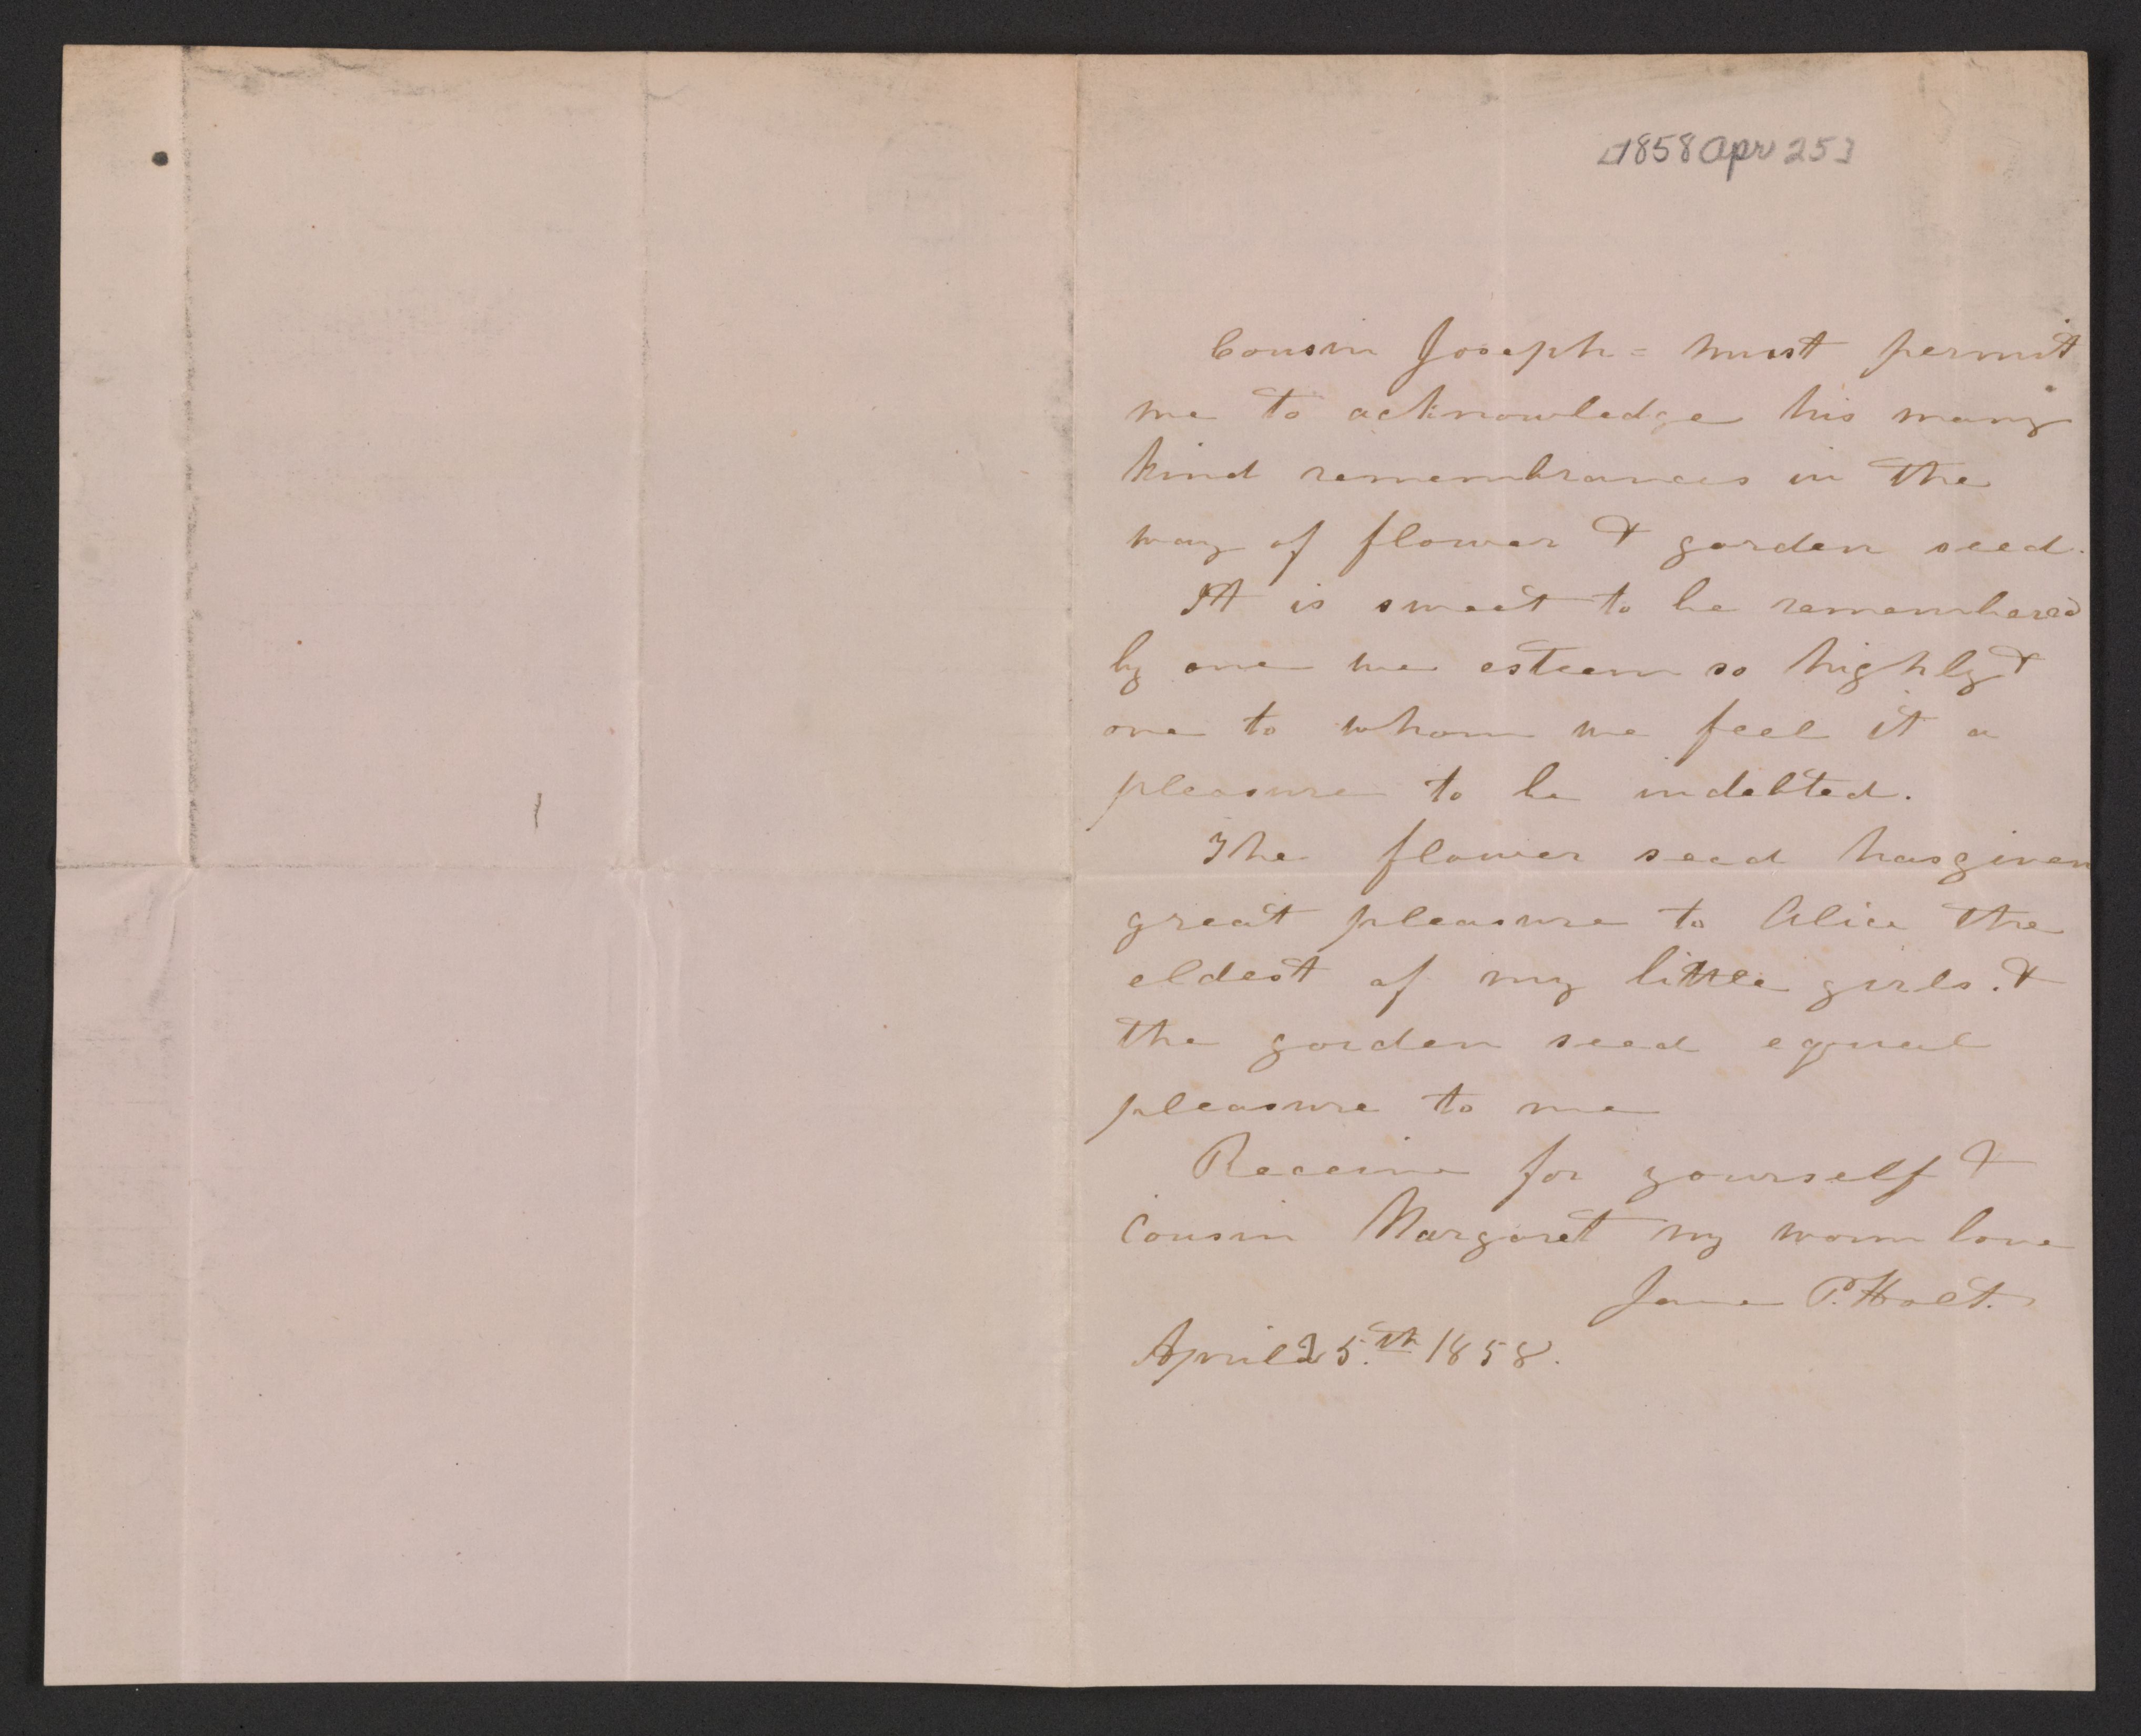 [1858 Apr 25]
Cousin Joseph = must permit
me to acknowledge his many
kind remembrances in the
way of flower & garden seed.
It is sweet to be remembered
by one we esteem so highly &
one to whom we feel it a
pleasure to be indebted.
The flower seed has given
great pleasure to Alice the
eldest of my little girls. &
the garden seed equal
pleasure to me
Receive for yourself &
Cousin Margaret my warm love
Jane P. Holt.
April 25.th 1858.